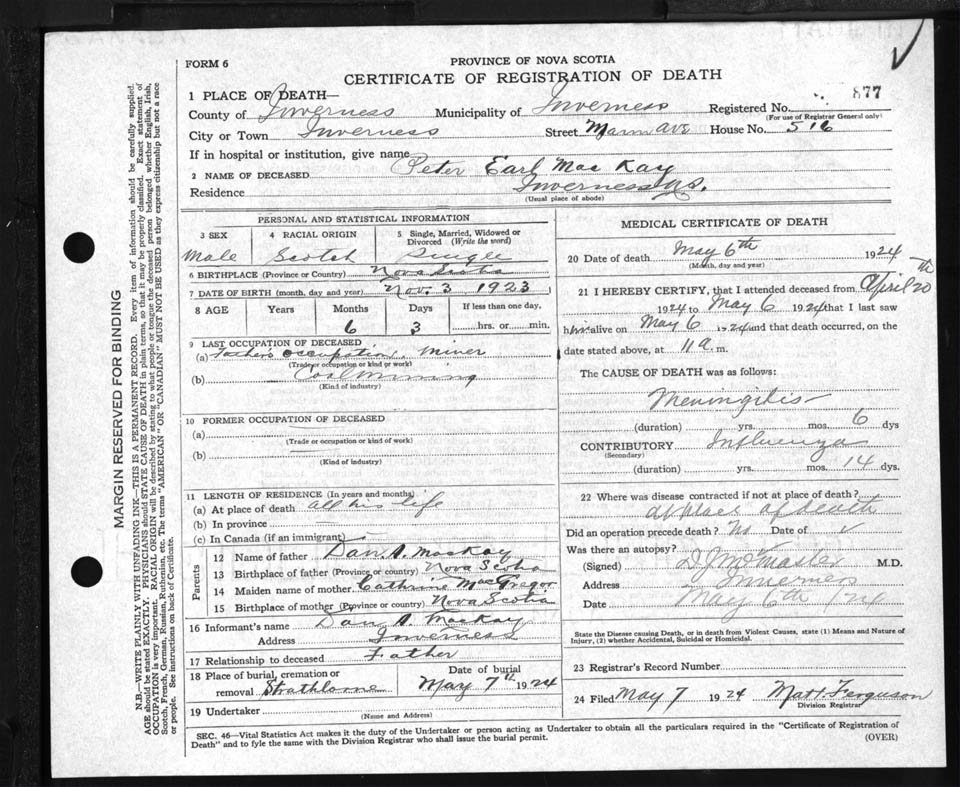 FORM 6
PROVINCE OF NOVA SCOTIA
CERTIFICATE OF REGISTRATION OF DEATH
1 PLACE OF DEATH—
877
County of Inverness Municipality of Inverness Registered No.
(For use of Registrar General only)
City or Town Inverness Street Mann Ave House No. 516
If in hospital or institution, give name
2 NAME OF DECEASED Peter Earl MacKay
Residence Inverness N.S.
(Usual place of abode)
PERSONAL AND STATISTICAL INFORMATION
3 SEX 4 RACIAL ORIGIN 5 Single, Married, Widowed or Divorced (Write the word)
Male Scotch Single
6 BIRTHPLACE (Province or Country) Nova Scotia
7 DATE OF BIRTH (month, day and year) Nov. 3 1923
8 AGE Years Months Days If less than one day,
6 3 hrs. or min.
9 LAST OCCUPATION OF DECEASED
(a) Father's occupation, Miner
(Trade or occupation or kind or work)
(b) Coal Mining
(Kind of industry)
10 FORMER OCCUPATION OF DECEASED
(a)
(Trade or occupation or kind of work)
(b)
(Kind of industry)
11 LENGTH OF RESIDENCE (In years and months)
(a) At place of death all his life
(b) In province
(c) In Canada (if an immigrant)
Parents
12 Name of father Dan A. MacKay
13 Birthplace of father (Province or country) Nova Scotia
14 Maiden name of mother Cathrine MacGregor
15 Birthplace of mother (Province or country) Nova Scotia
16 Informant's name Dan A. MacKay
Address Inverness
17 Relationship to deceased Father
18 Place of burial, cremation or removal Strathlorne Date of burial May 7th 1924
19 Undertaker
(Name and Address)
MEDICAL CERTIFICATE OF DEATH
20 Date of death May 6th 1924
(Month, day and year)
21 I HEREBY CERTIFY, that I attended deceased from April 20th
1924 to May 6 1924 that I last saw
him alive on May 6 1924 and that death occurred, on the
date stated above, at 11 a. m.
The CAUSE OF DEATH was as follows:
Meningitis
(duration) yrs. mos. 6 dys
CONTRIBUTORY Influenza
(Secondary)
(duration) yrs. mos. 14 dys.
22 Where was disease contracted if not at place of death?
at place of death
Did an operation precede death? No Date of
Was there an autopsy?
(Signed) D J McMaster M.D.
Address Inverness
Date May 6th /24
State the Disease causing Death, or in death from Violent Causes, state (1) Means and Nature of
Injury, (2) whether Accidental, Suicidal or Homicidal.
23 Registrar's Record Number
24 Filed May 7 1924 Matt. Ferguson
Division Registrar
SEC. 46—Vital Statistics Act makes it the duty of the Undertaker or person acting as Undertaker to obtain all the particulars required in the "Certificate of Registration of
Death" and to fyle the same with the Division Registrar who shall issue the burial permit.
(OVER)
MARGIN RESERVED FOR BINDING
N.B.—WRITE PLAINLY WITH UNFADING INK—THIS IS A PERMANENT RECORD. Every item of information should be carefully supplied.
AGE should be stated EXACTLY. PHYSICIANS should STATE CAUSE OF DEATH in plain terms, so that it may be properly classified. Exact statement of
OCCUPATION is very important. RACIAL ORIGIN will be described by stating to what people or tongue the deceased person belonged whether English, Irish,
Scotch, French, German, Russian, Ruthenian, etc. The terms "AMERICAN" OR "CANADIAN" MUST NOT BE USED as they express citizenship but not a race
or people. See instructions on back of Certificate.